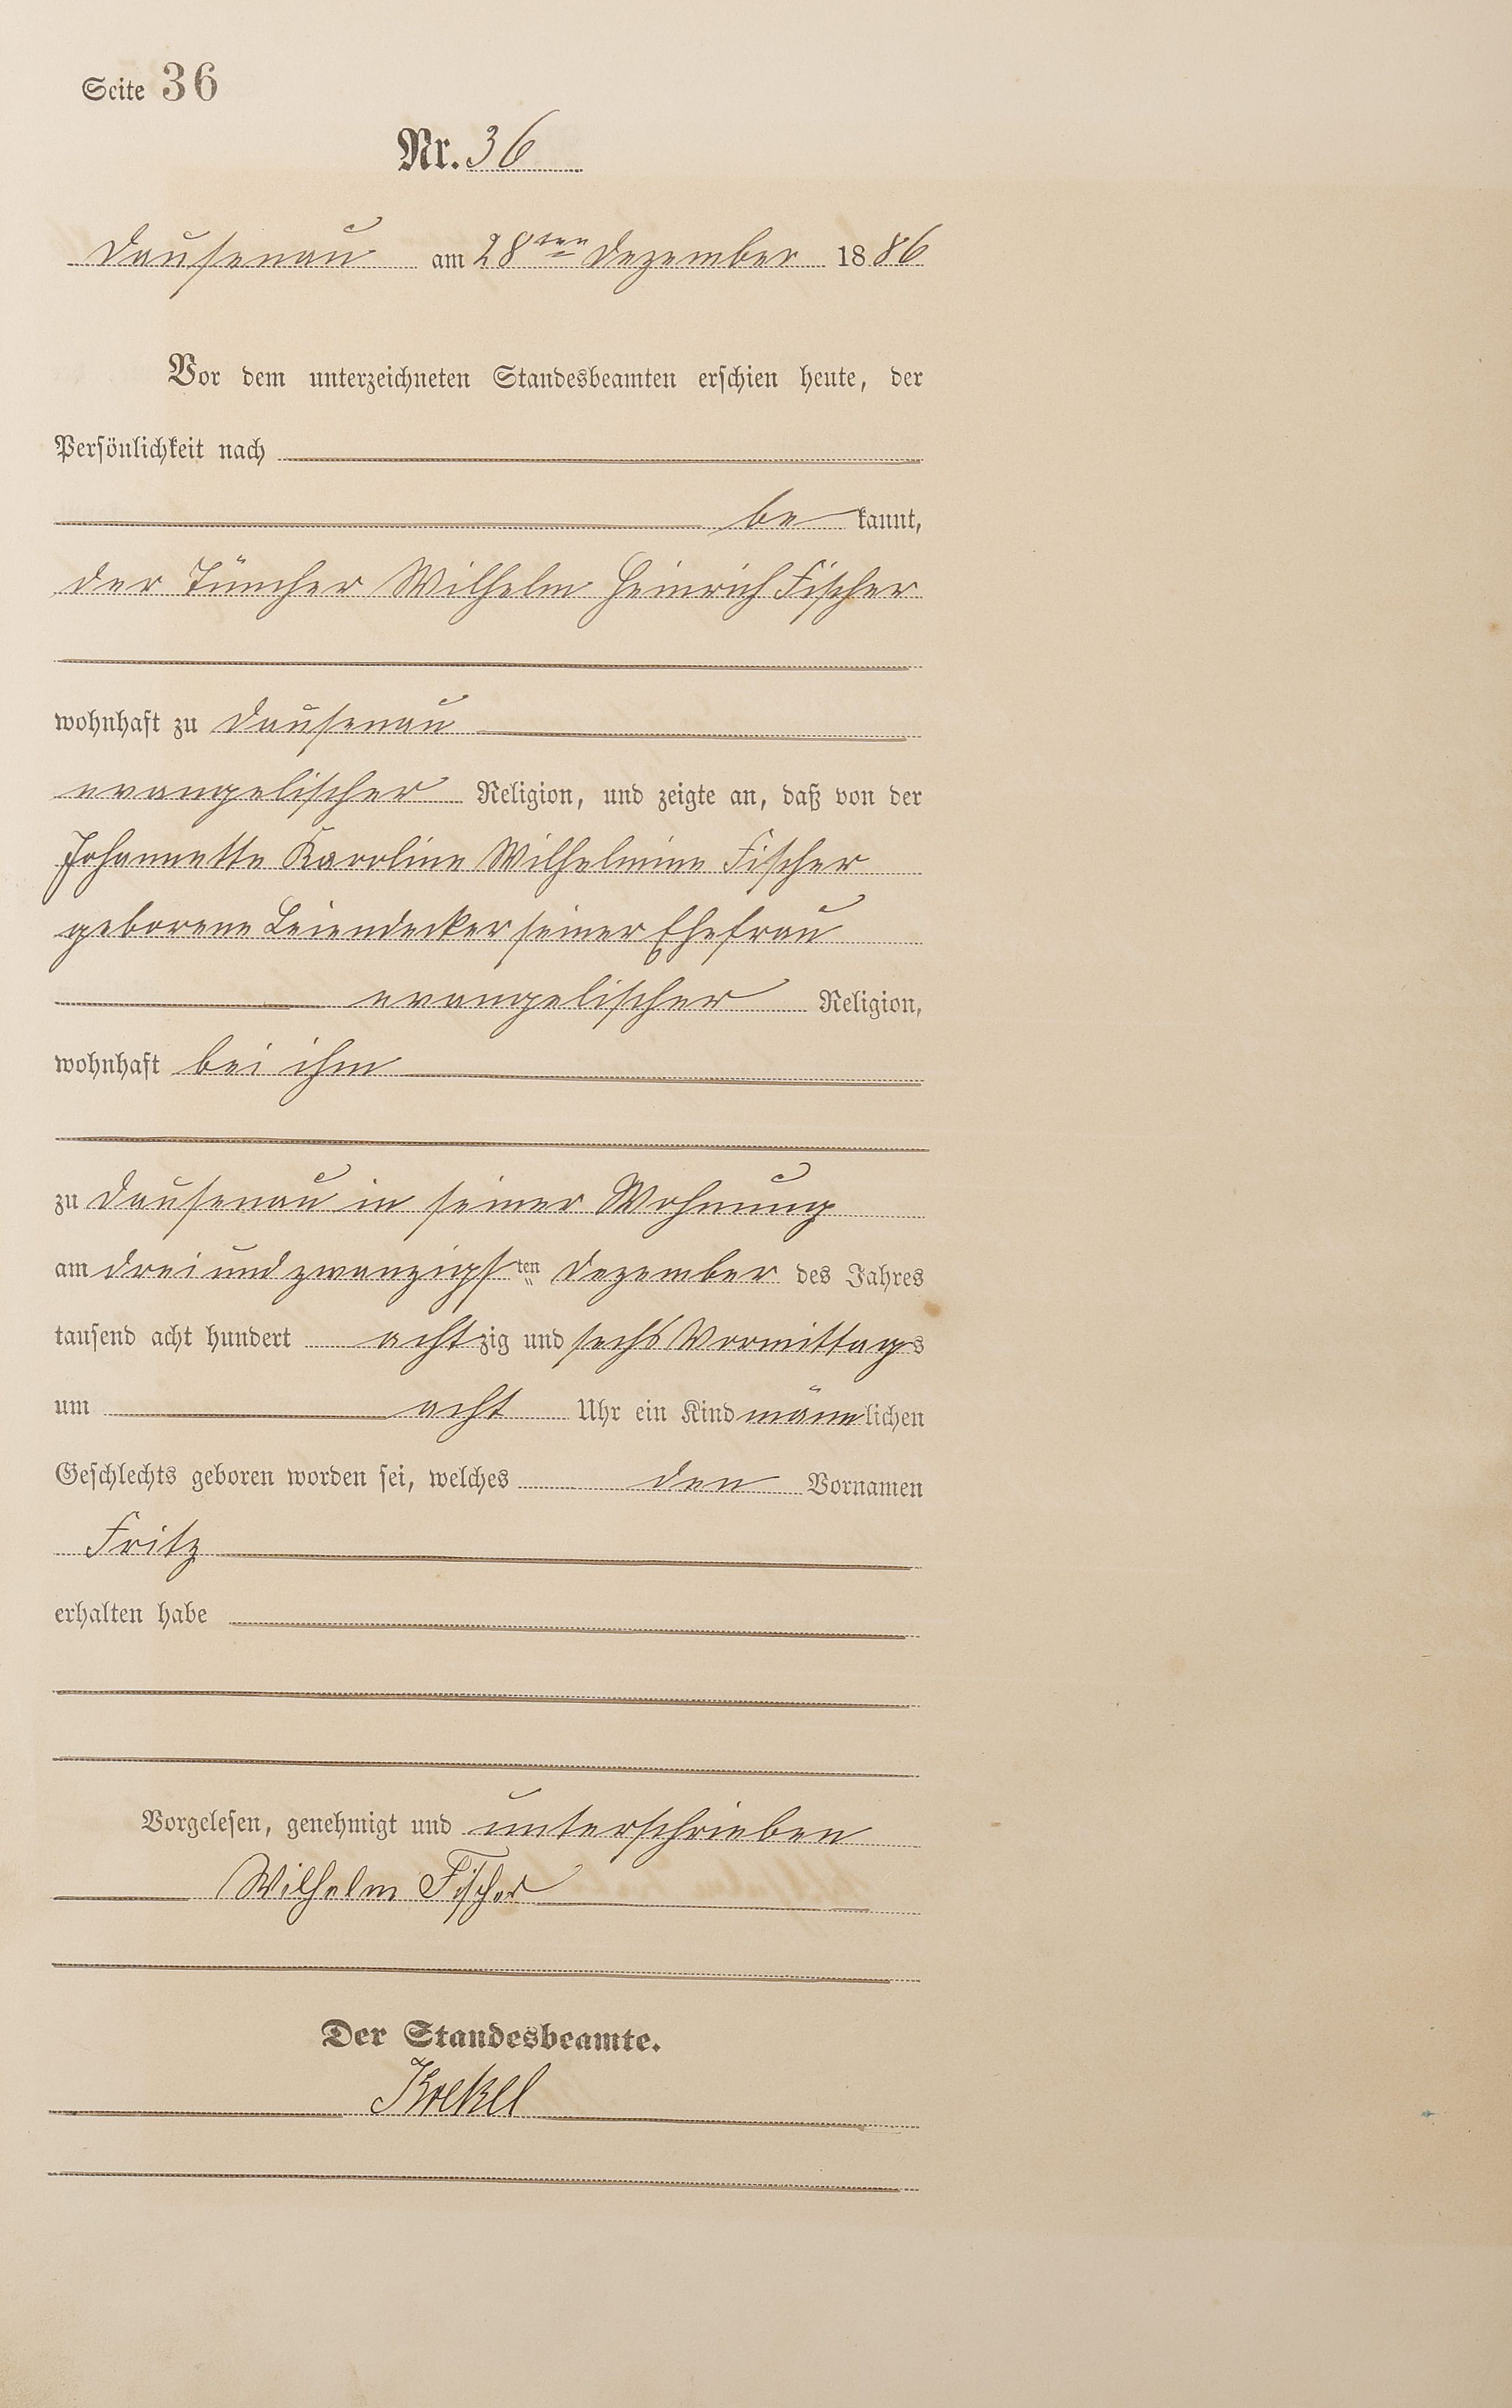 Seite 36
Nr. 36
Dausenau am 28ten Dezember 1886
Vor dem unterzeichneten Standesbeamten erschien heute, der
Persönlichkeit nach
be kannt,
der Tüncher Wilhelm Heinrich Fischer
wohnhaft zu Dausenau
evangelischer Religion, und zeigte an, daß von der
Johannette Karoline Wilhelmine Fischer
geborene Leiendecker seiner Ehefrau
evangelischer Religion,
wohnhaft bei ihm
zu Dausenau in seiner Wohnung
am drei und zwanzigsten Dezember des Jahres
tausend acht hundert achtzig und sechs Vormittags
um acht Uhr ein Kind männlichen
Geschlechts geboren worden sei, welches den Vornamen
Fritz
erhalten habe
Vorgelesen, genehmigt und unterschrieben
Wilhelm Fischer
Der Standesbeamte.